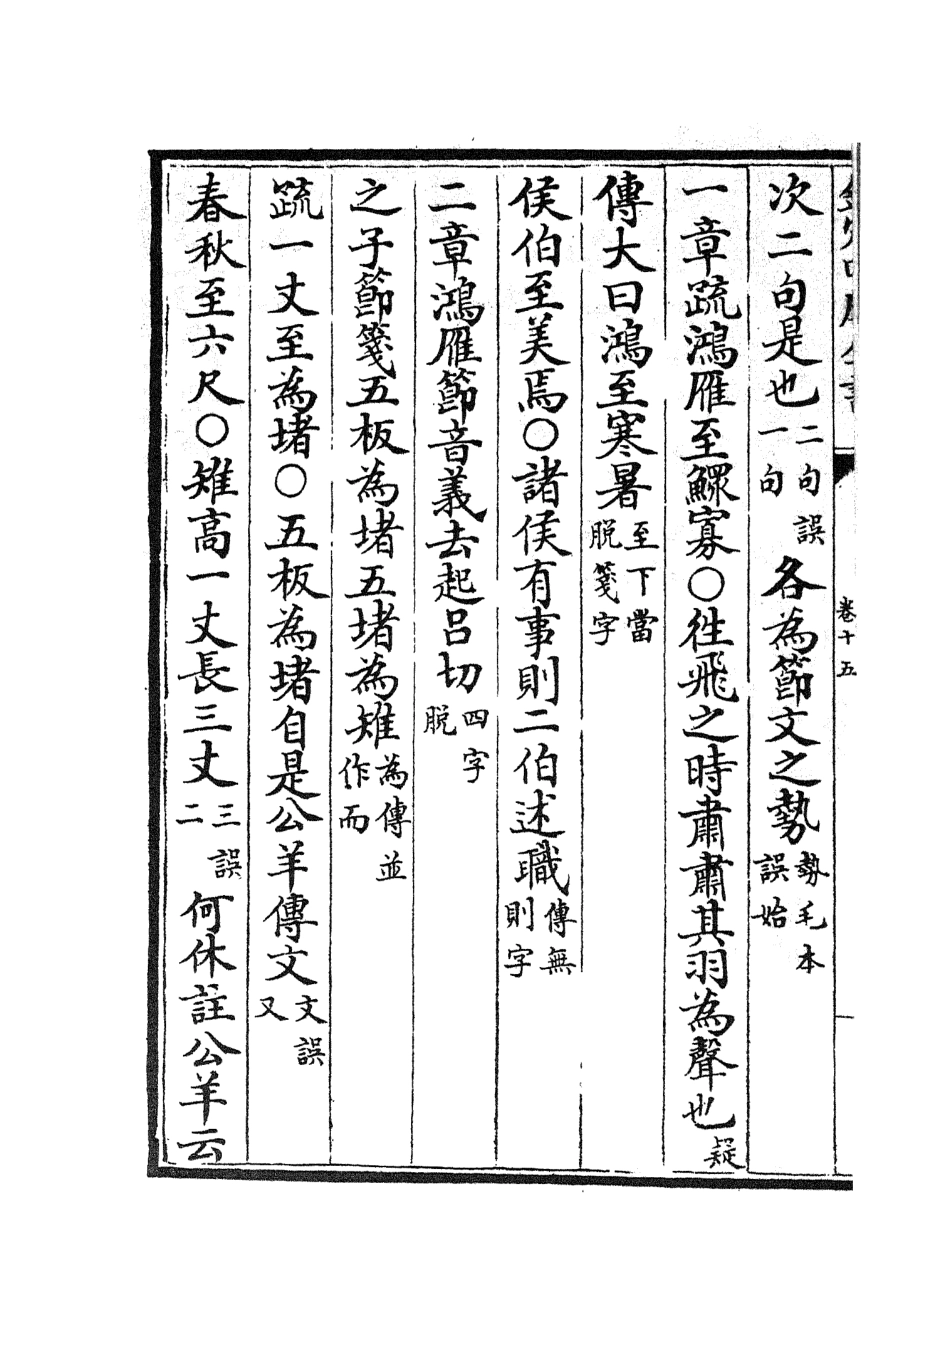 次二句是也二句誤一句各為節文之勢勢毛本誤始
一章䟽鴻雁至鰥寡○徃飛之時肅肅其羽為聲也疑
傳大曰鴻至寒暑至下當脫箋字
侯伯至美焉○諸侯有事則二伯述職傳無則字
二章鴻雁節音義去起呂切四字脫
之子節箋五板為堵五堵為雉為傳並作而
䟽一丈至為堵○五板為堵自是公羊傳文文誤又
春秋至六尺○雉高一丈長三丈三誤二何休註公羊云
卷十五